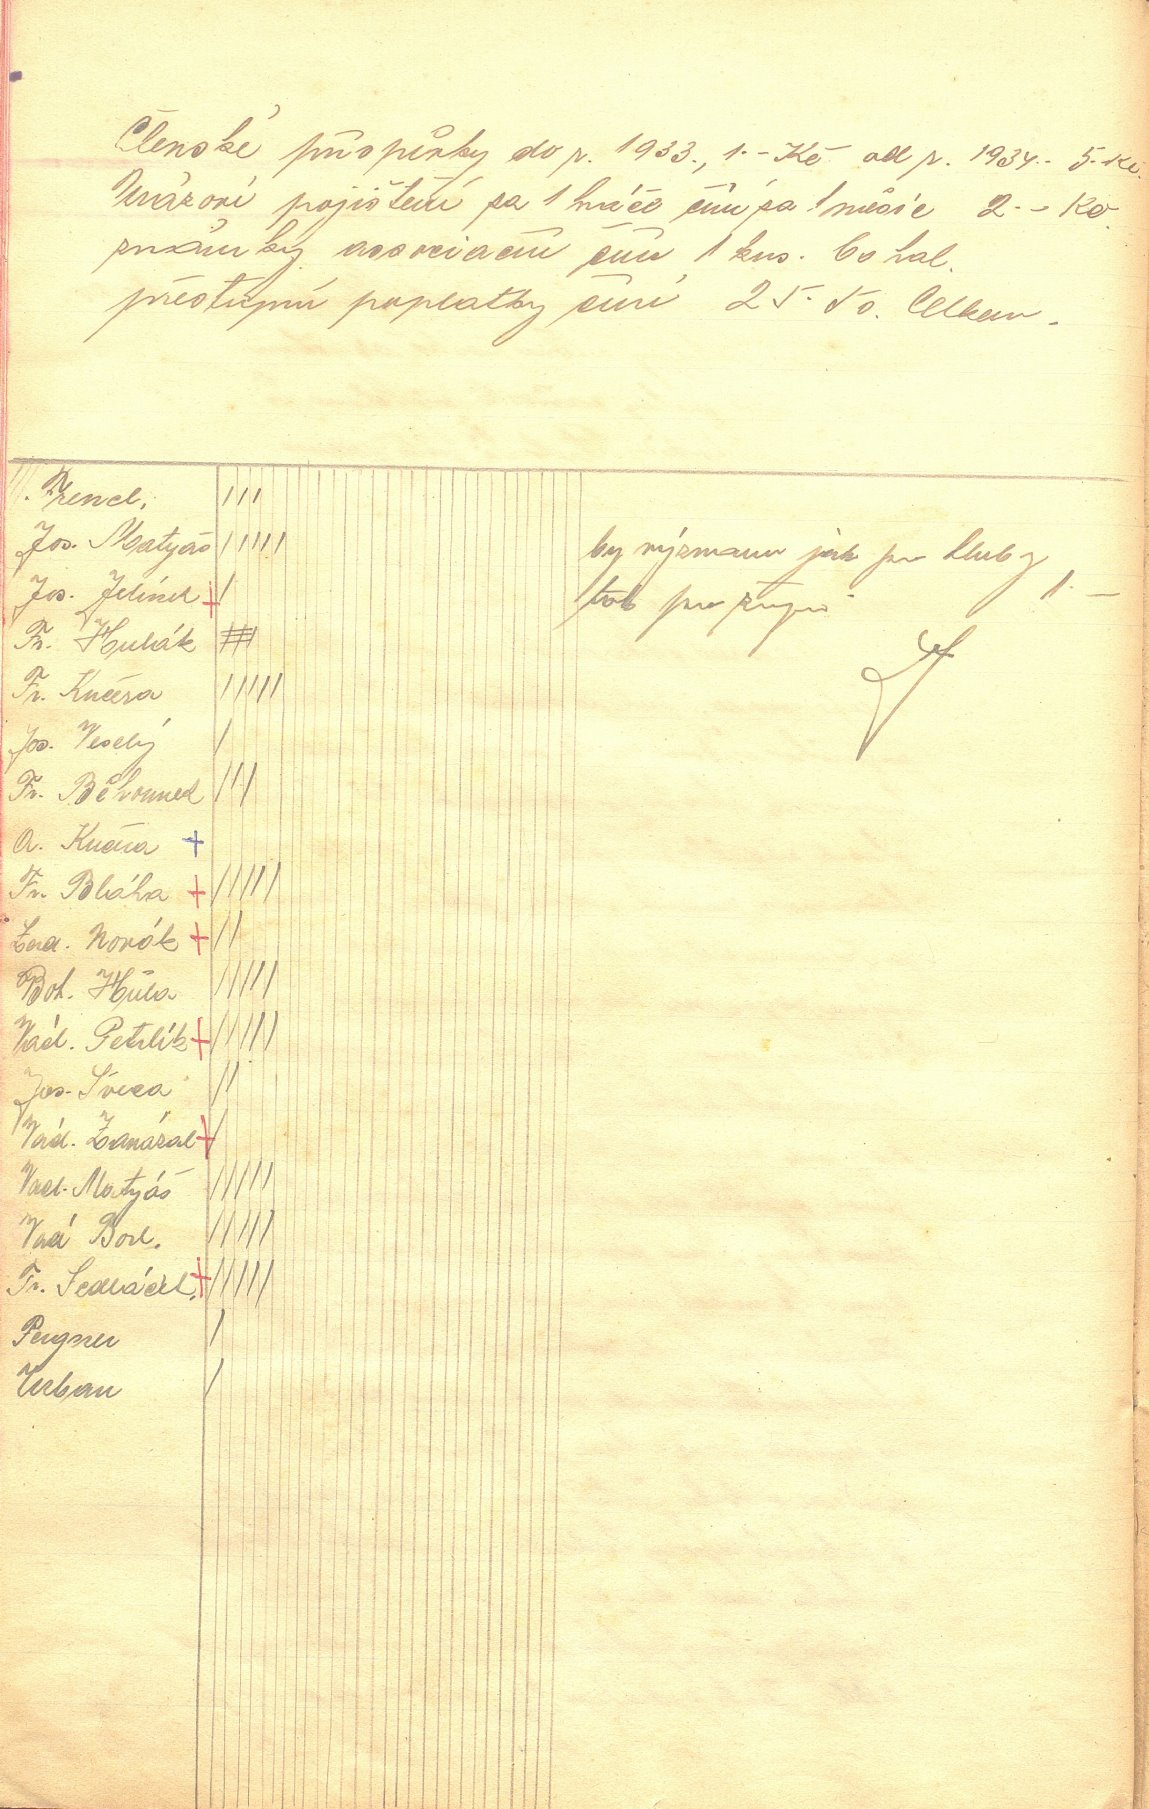 Členské příspěvky do r. 1933., 1.- Kč od r. 1934.- 5.- Kč.
Úrazové pojištění za 1 hráče činí za 1 měsíc 2.- Kč.
známky asociační činí 1 kus. 60 hal.
přestupní poplatky činí 25.50. Celkem.
Frencl.
Jos. Matyáš
Jos. Jelínek +
Fr. Hulák
Fr. Kučera
Jos. Veselý
Fr. Běhounek
A. Kučera +
Fr. Bláha +
Lad. Novák +
Boh. Hůla
Václ. Petrlík +
Jos. Šveca
Václ. +
Vacl. Matyáš
Vacl Borl.
Fr. Sedláček. +
Pergner
Urban
jak pro kluby
tak pro župu 1.-